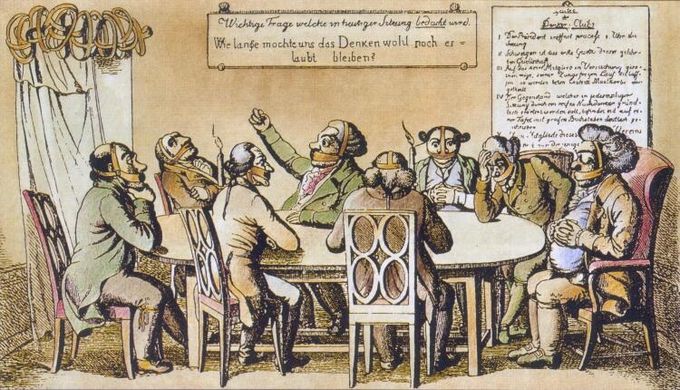 Wichtige Frage welche in heutiger Sitzung bedacht wird.
Wie lange möchte uns das Denken wohl noch er-
laubt bleiben?
der
Denker-Club
I. Der Präsident eröffnet präcise 8 Uhr die
Sitzung
II Schweigen ist das erste Gesetz dieser gelehr-
ten Gesellschaft
III Auf das kein Mitglied in Versuchung
seiner Zunge freyen Lauf
so werden beim Eintritt Maulkörbe aus-
getheilt
IV Der Gegenstand welcher in jedesmaliger
Sitzung durch ein reifes Nachdenken gründ-
lich erörtert werden soll, befindet sich auf ei-
ner Tafel mit großen Buchstaben deutlich ge-
schrieben
Mitglieder dieses Vereins